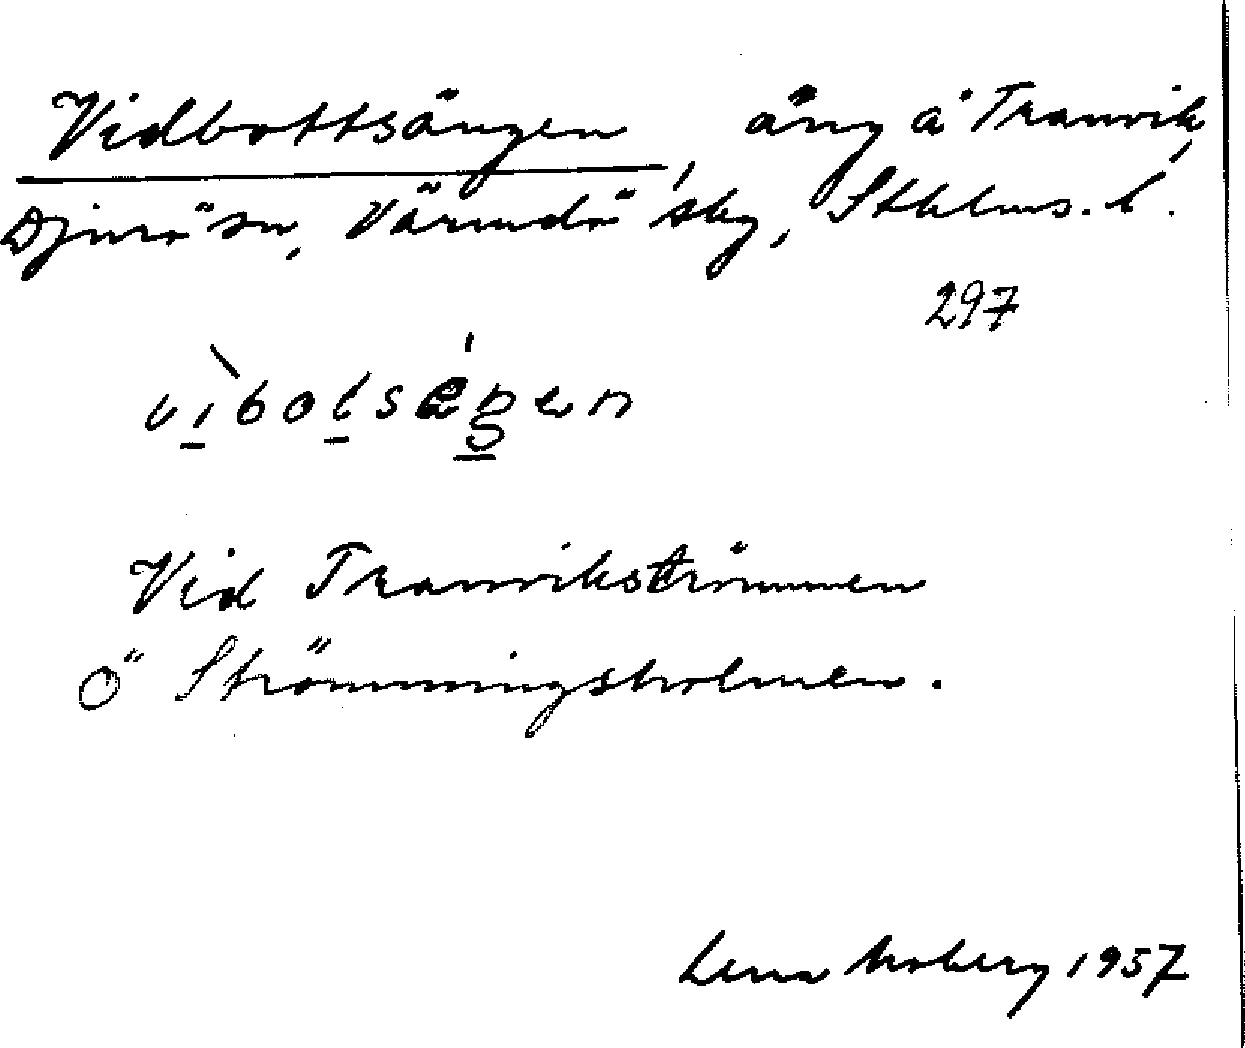 Vidbottsängen, äng å Tranvik,
Djurö sn, Värmdö skg, Sthlms. l.
297
vìbotség̲en
Vid Tranvikströmmen
Ö Strömmingsholmen.
Lena Moberg 1957